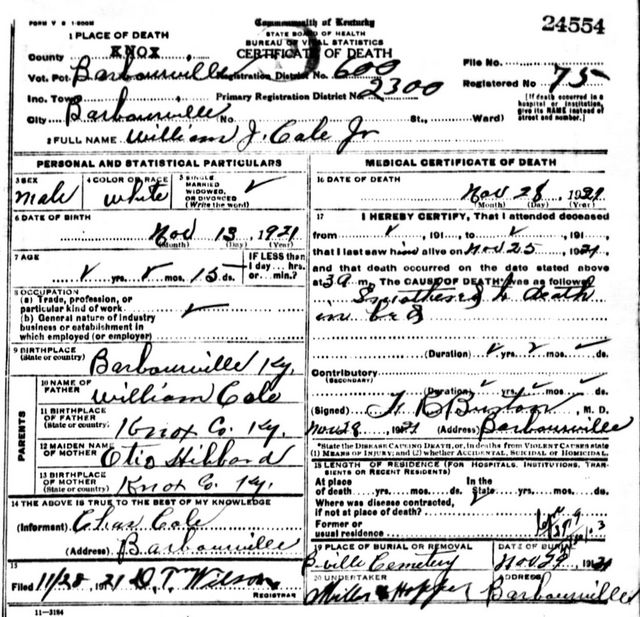 FORM V S 1-500M
Commonwealth of Kentucky
STATE BOARD OF HEALTH
BUREAU OF VITAL STATISTICS
CERTIFICATE OF DEATH
24554
1 PLACE OF DEATH
County KNOX
Vot. Pct. Barbourville Registration District No. 600
Inc. Town Primary Registration District No. 2300
City Barbourville No. St., Ward)
File No.
Registered No. 75
[If death occurred in a hospital or institution, give its NAME instead of street and number.]
2 FULL NAME William J. Cale Jr
PERSONAL AND STATISTICAL PARTICULARS
3 SEX male
4 COLOR OR RACE white
5 SINGLE MARRIED WIDOWED, OR DIVORCED (Write the word) ✓
6 DATE OF BIRTH Nov 13, 1921
(Month) (Day) (Year)
7 AGE ✓ yrs. ✓ mos. 15 ds.
IF LESS than 1 day... hrs. or... min.?
8 OCCUPATION
(a) Trade, profession, or particular kind of work ✓
(b) General nature of industry business or establishment in which employed (or employer)
9 BIRTHPLACE (State or country) Barbourville Ky.
PARENTS
10 NAME OF FATHER William Cale
11 BIRTHPLACE OF FATHER (State or country) Knox Co. Ky.
12 MAIDEN NAME OF MOTHER Hibbard
13 BIRTHPLACE OF MOTHER (State or country) Knox Co. Ky.
14 THE ABOVE IS TRUE TO THE BEST OF MY KNOWLEDGE
(Informant) Chas Cole
(Address) Barbourville
15
Filed 11/28 1921 D. T. Wilson
REGISTRAR
11-3184
MEDICAL CERTIFICATE OF DEATH
16 DATE OF DEATH Nov 28, 1921
(Month) (Day) (Year)
17 I HEREBY CERTIFY, That I attended deceased
from ✓, 191..., to ✓, 191...,
that I last saw him alive on Nov 25, 1921,
and that death occurred on the date stated above
at 3 a m. The CAUSE OF DEATH* was as follows:
Smothered to death
in bed
(Duration) ✓ yrs. ✓ mos. ✓ ds.
Contributory
(SECONDARY)
(Duration) ✓ yrs. ✓ mos. ✓ ds.
(Signed) Burton, M. D.
Nov 28, 1921 (Address) Barbourville
*State the DISEASE CAUSING DEATH, or, in deaths from VIOLENT CAUSES state (1) MEANS OF INJURY; and (2) whether ACCIDENTAL, SUICIDAL or HOMICIDAL.
18 LENGTH OF RESIDENCE (FOR HOSPITALS, INSTITUTIONS, TRANSIENTS OR RECENT RESIDENTS)
At place of death yrs. mos. ds. In the State yrs. mos. ds.
Where was disease contracted, if not at place of death?
Former or usual residence
19 PLACE OF BURIAL OR REMOVAL
B-ville Cemetery
DATE OF BURIAL
Nov 29, 1921
20 UNDERTAKER
Miller & Hopper
ADDRESS
Barbourville